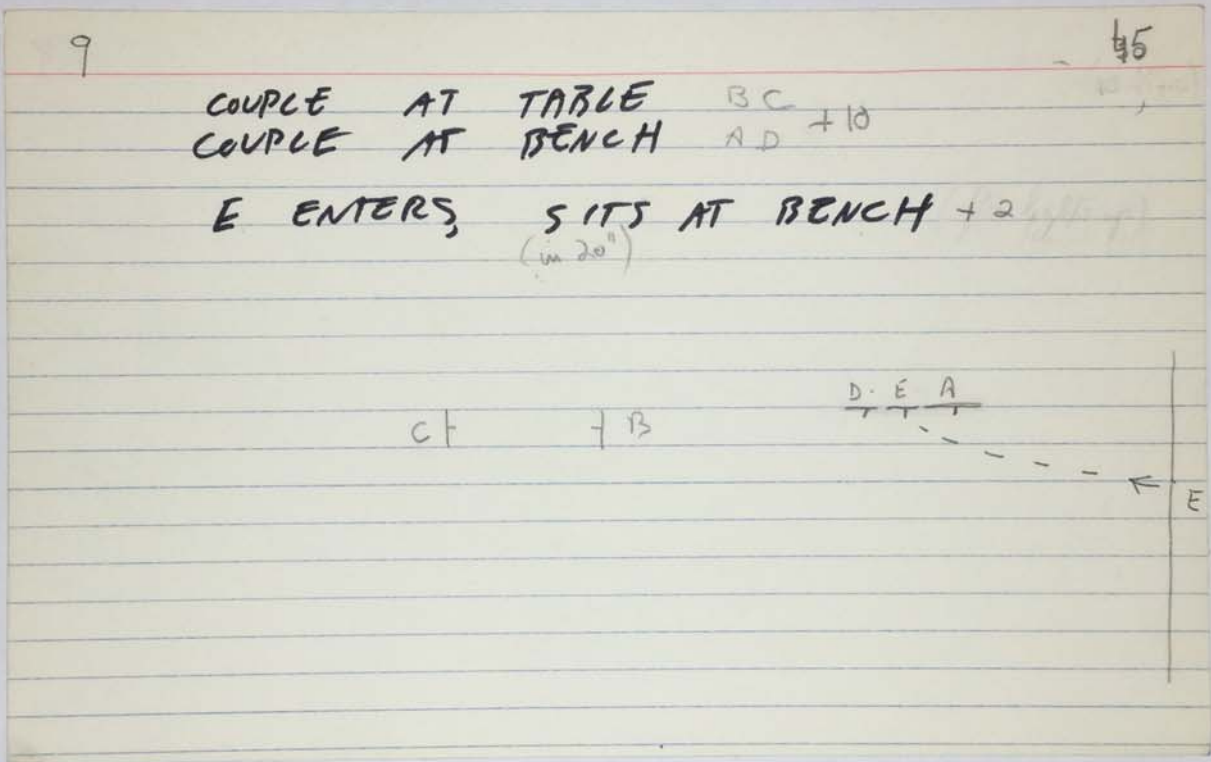 9 45
COUPLE AT TABLE BC
COUPLE AT BENCH AD + 10
E ENTERS, SITS AT BENCH + 2
(in 20")
D. E A
C B
E